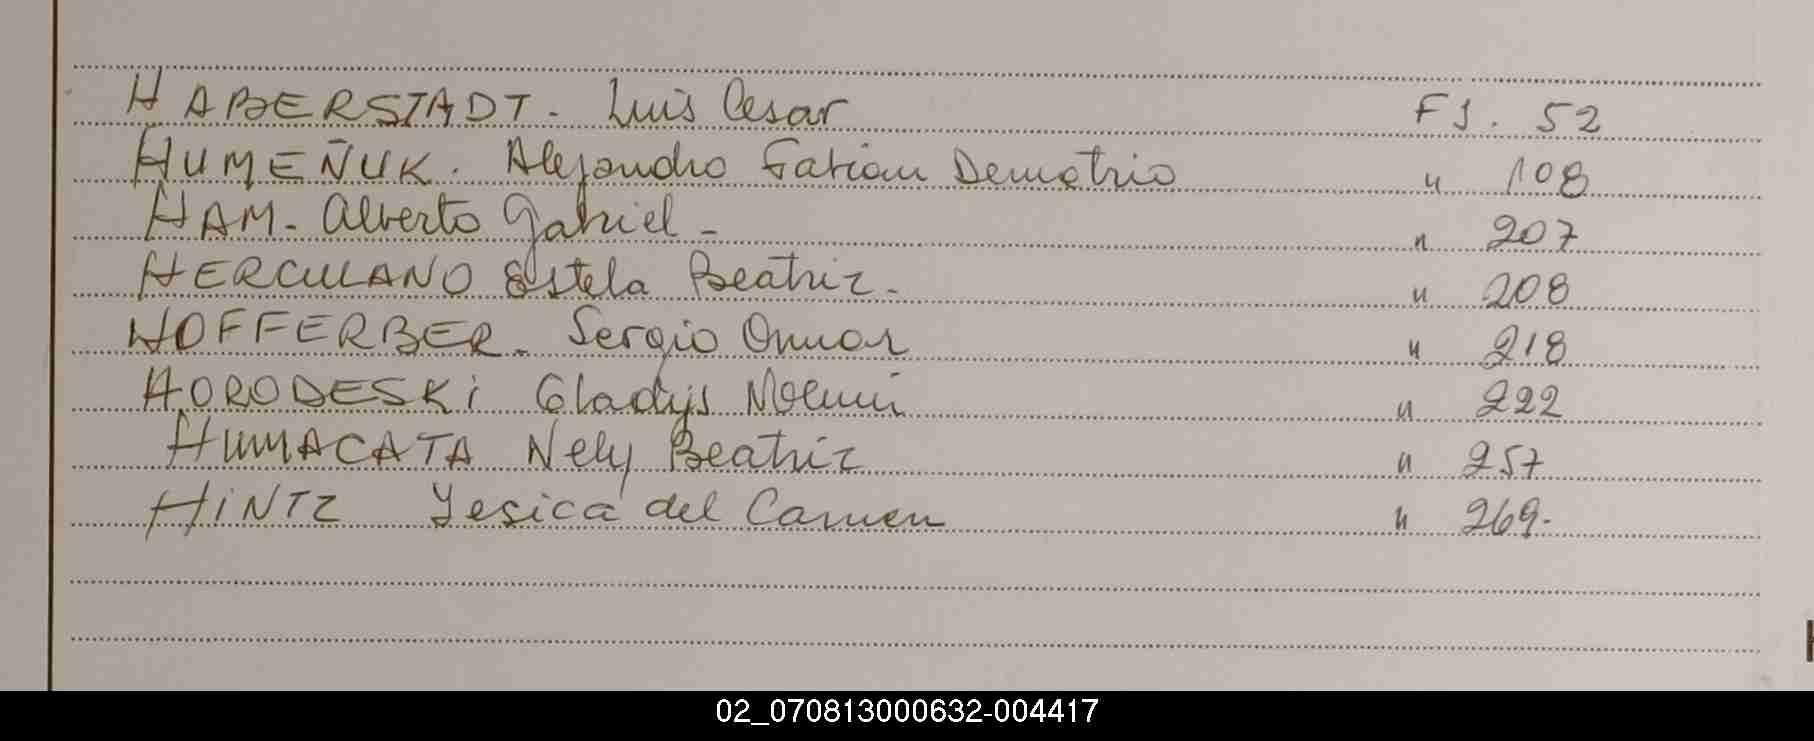 HABERSTADT. Luis Cesar FJ. 52
HUMEÑUK. Alejandro Fabian Demetrio " 108
HAM. Alberto Gabriel - " 207
HERCULANO Estela Beatriz. " 208
HOFFERBER. Sergio Omar " 218
HORODESKi Gladys Noemi " 222
HUMACATA Nely Beatriz " 257
HiNTZ Yesica del Carmen " 269.
02_070813000632-004417